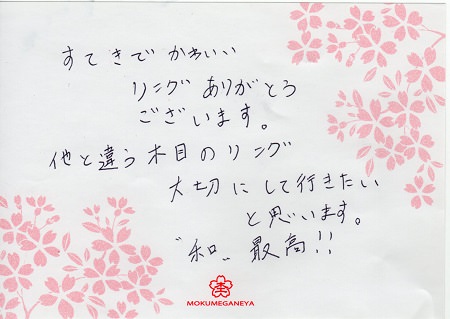 すてきで かわいい
リング ありがとう
ございます。
他と違う木目のリング
大切にして行きたい
と思います。
〝和〟 最高!!
MOKUMEGANEYA